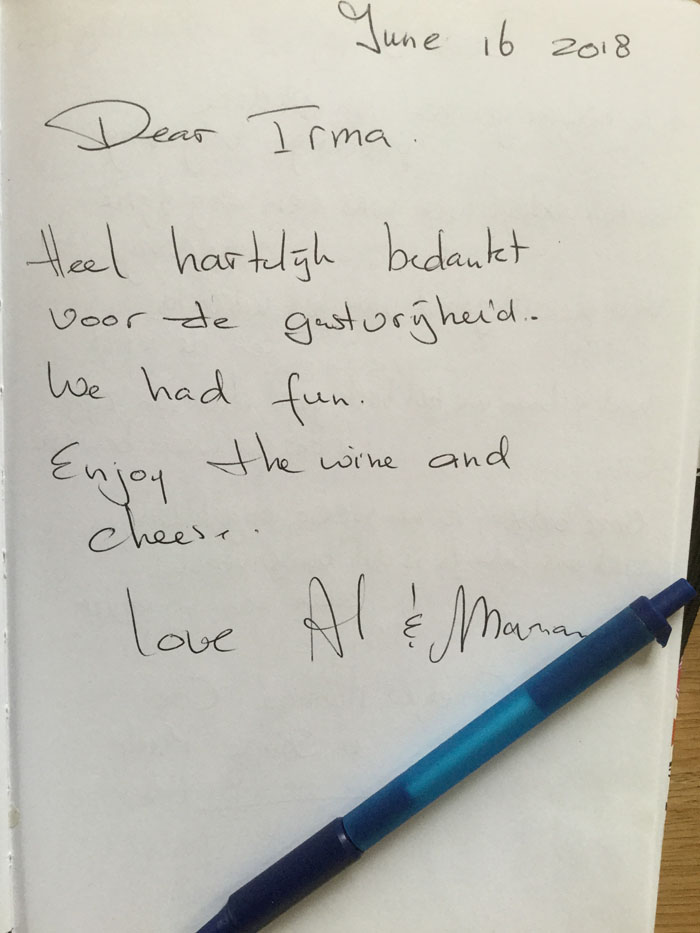 June 16 2018
Dear Irma.
Heel hartelijk bedankt
voor de gastvrijheid..
We had fun.
Enjoy the wine and
cheese..
Love Al &